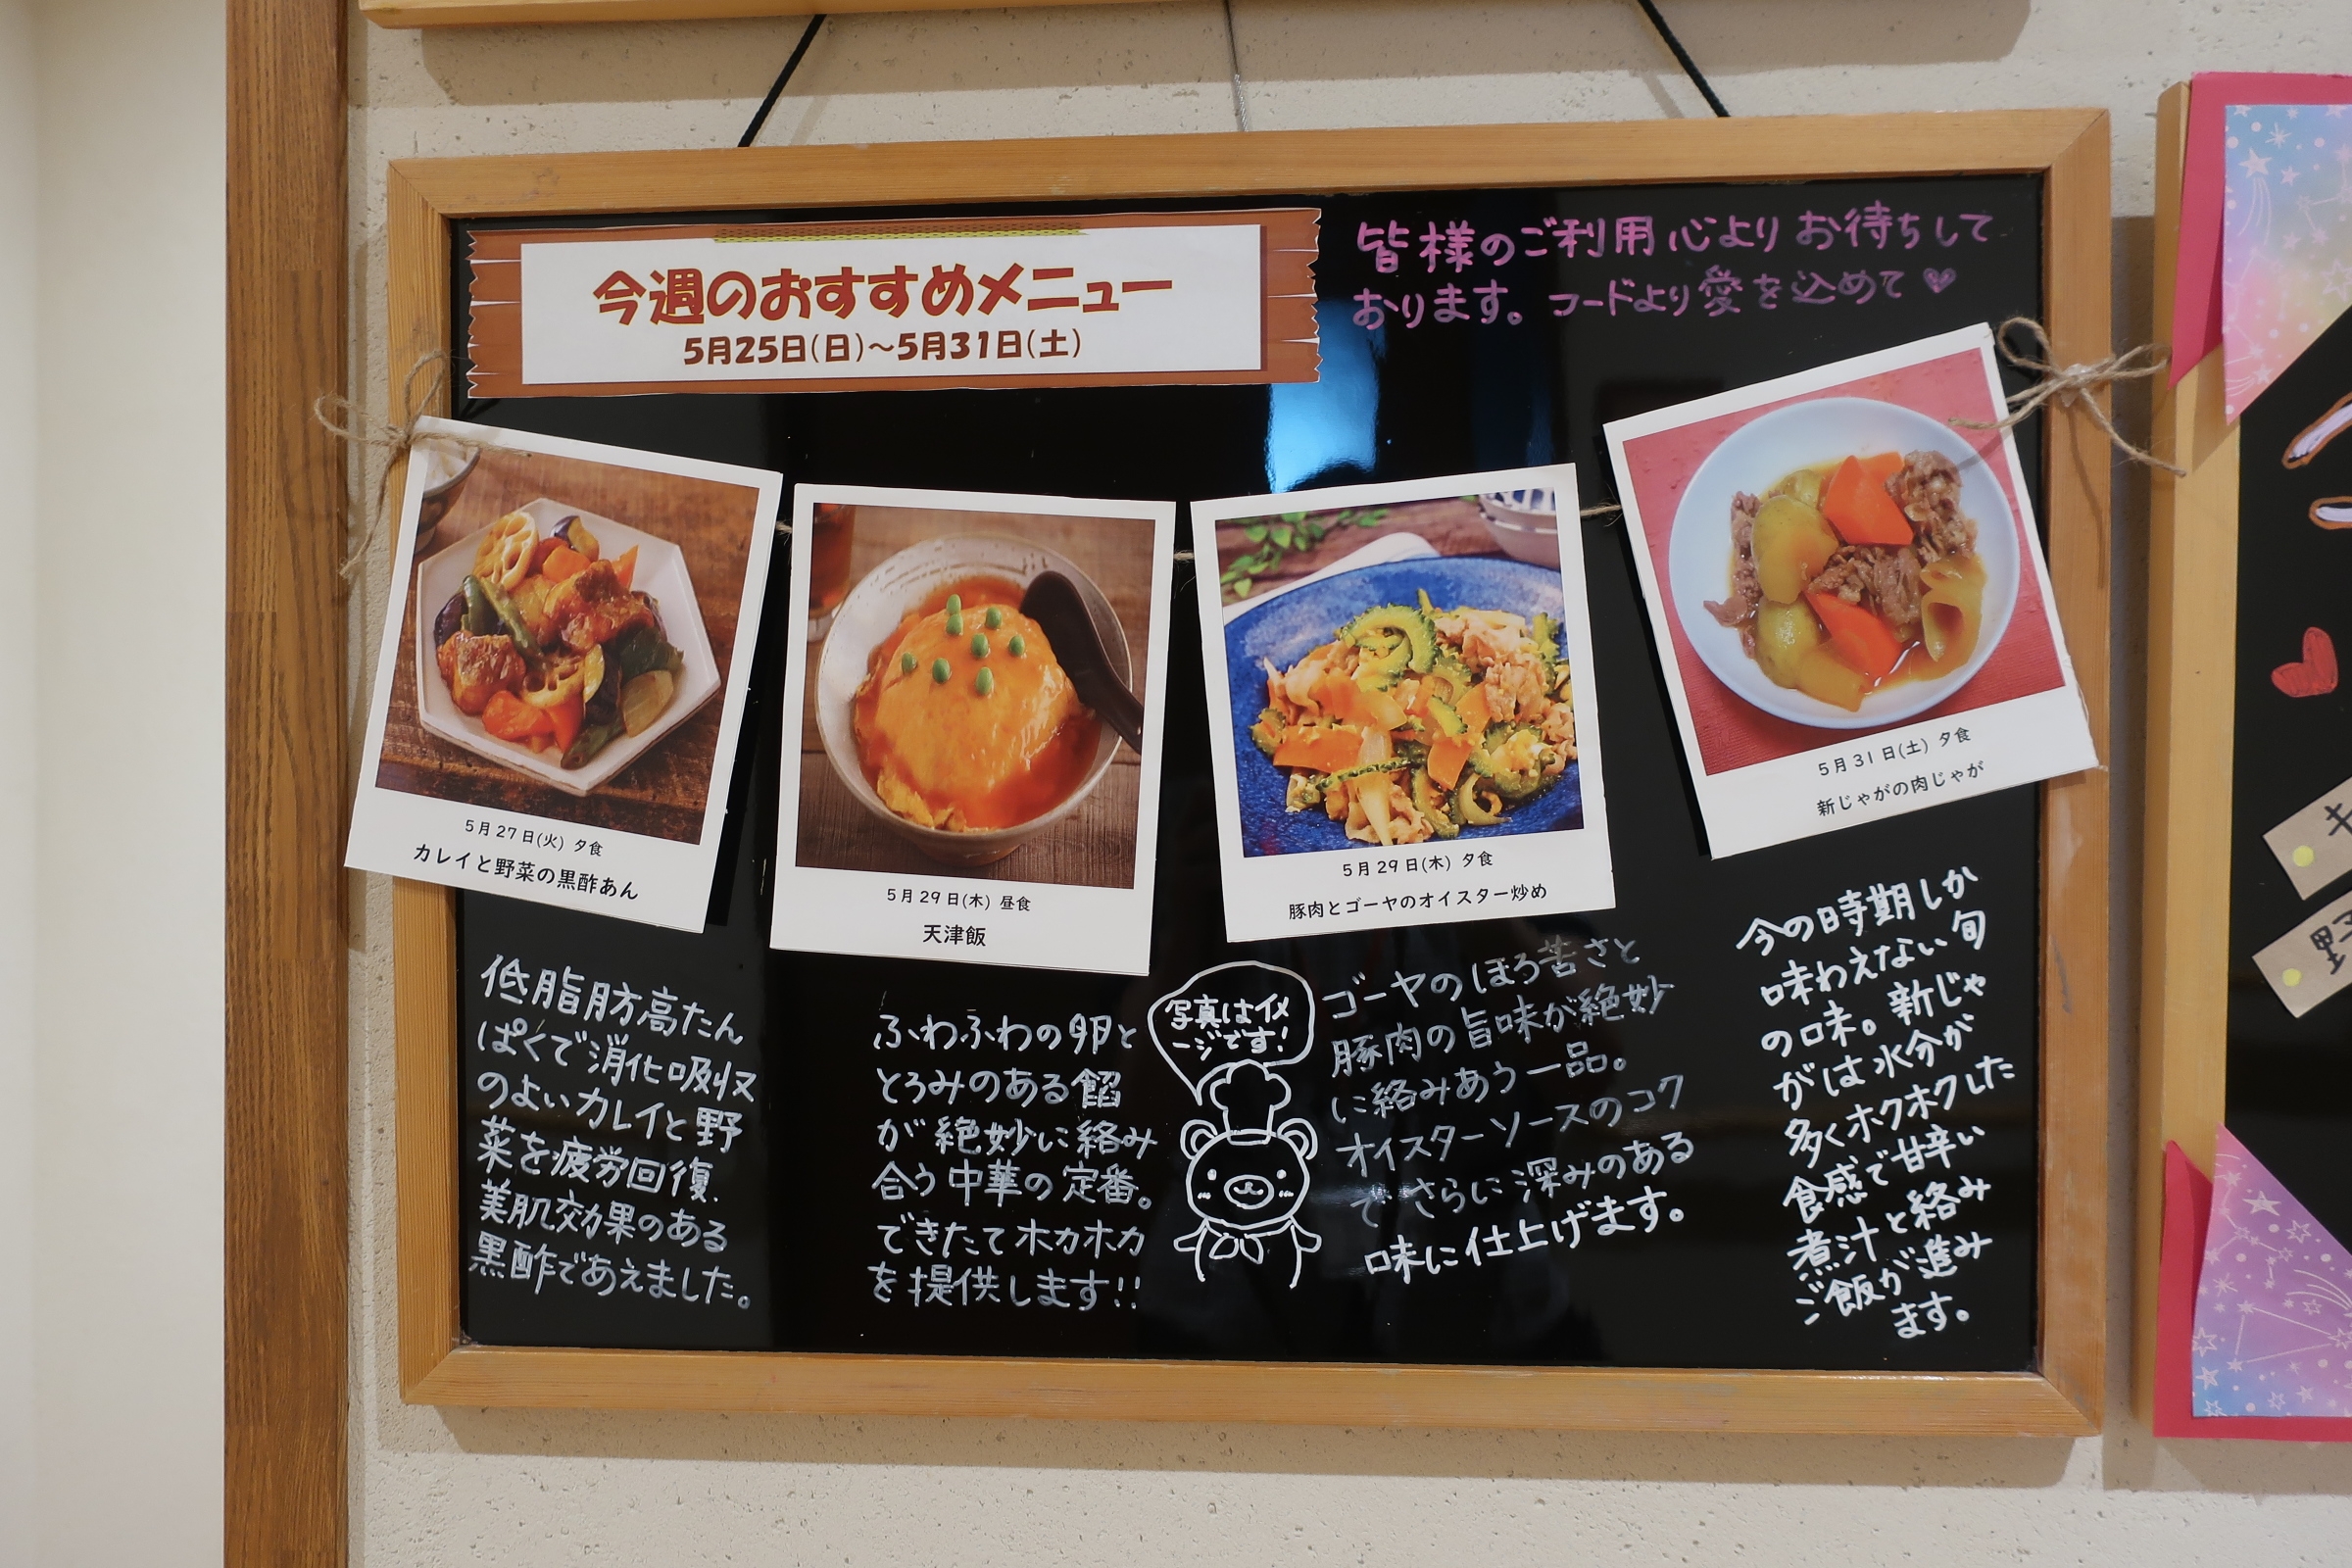 今週のおすすめメニュー
5月25日(日)～5月31日(土)
皆様のご利用心よりお待ちして
おります。フードより愛を込めて♥
5月27日(火) 夕食
カレイと野菜の黒酢あん
5月29日(木) 昼食
天津飯
5月29日(木) 夕食
豚肉とゴーヤのオイスター炒め
5月31日(土) 夕食
新じゃがの肉じゃが
低脂肪高たん
ぱくで消化吸収
のよいカレイと野
菜を疲労回復、
美肌効果のある
黒酢であえました。
ふわふわの卵と
とろみのある餡
が絶妙に絡み
合う中華の定番。
できたてホカホカ
を提供します!!
写真はイメ
ージです!
ゴーヤのほろ苦さと
豚肉の旨味が絶妙
に絡みあう一品。
オイスターソースのコク
でさらに深みのある
味に仕上げます。
今の時期しか
味わえない旬
の味。新じゃ
がは水分が
多くホクホクした
食感で甘辛い
煮汁と絡み
ご飯が進み
ます。
キ
野